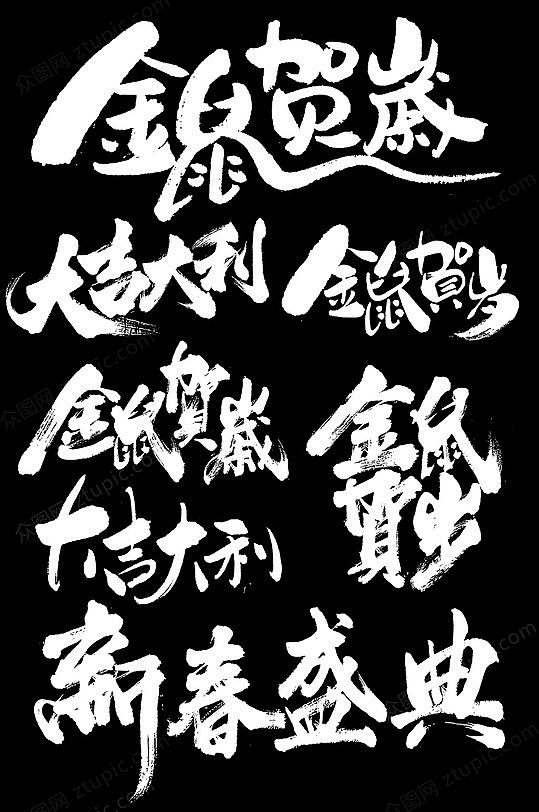 金鼠贺歲
大吉大利
金鼠賀岁
金鼠賀歲
金鼠
賀岁
大吉大利
新春盛典
众图网 ztupic.com